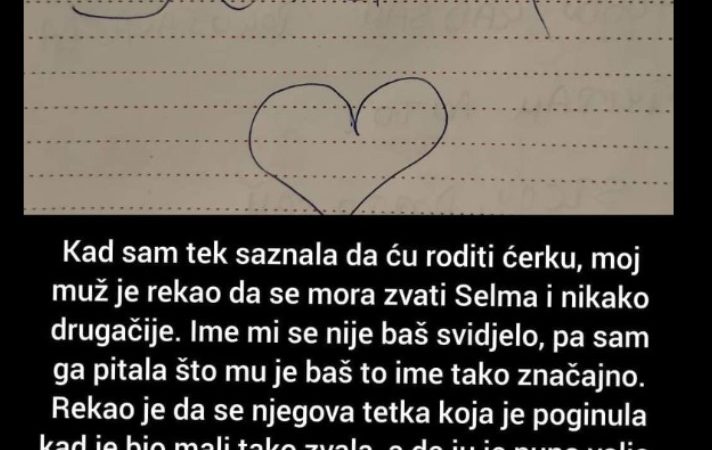 Kad sam tek saznala da ću roditi ćerku, moj
muž je rekao da se mora zvati Selma i nikako
drugačije. Ime mi se nije baš svidjelo, pa sam
ga pitala što mu je baš to ime tako značajno.
Rekao je da se njegova tetka koja je poginula
kad je bio mali tako zvala, a da ju je puno